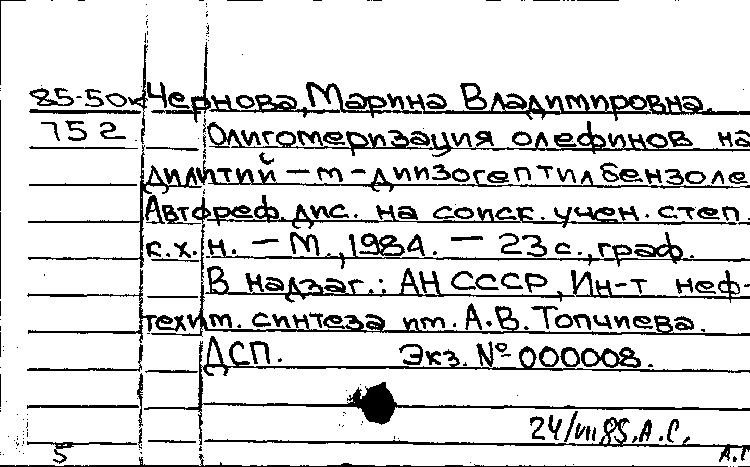 85-50к Чернова, Марина Владимировна.
752 Олигомеризация олефинов на
дилитий-m-диизогептилбензоле
Автореф. дис. на соиск. учен. степ.
к.х.н. — М., 1984. — 23 с., граф.
В надзаг.: АН СССР, Ин-т неф-
техим. синтеза им. А.В. Топчиева.
ДСП. Экз. № 000008.
24/VII 85. А.С.
5